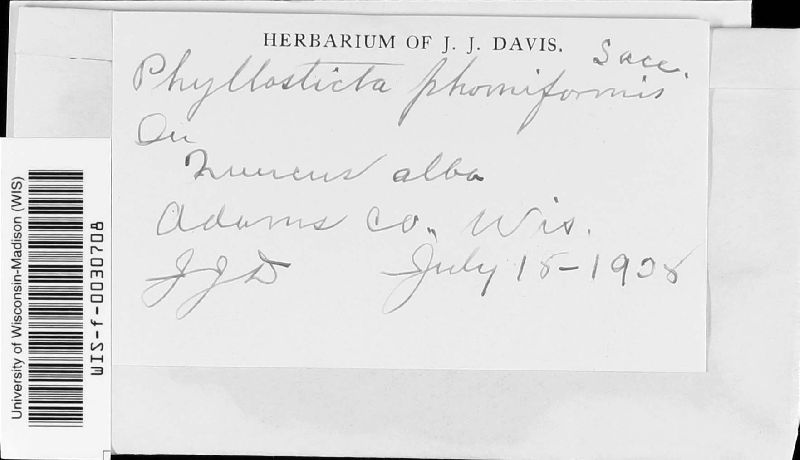 HERBARIUM OF J. J. DAVIS.
Phyllosticta phomiformis Sacc.
On
Quercus alba
Adams Co., Wis.
JJD July 15-1928
University of Wisconsin-Madison (WIS)
WIS-f-0030708